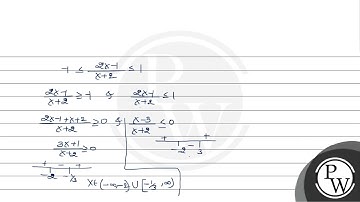 -1 ≤ 2x-1/x+2 ≤ 1
2x-1/x+2 ≥ -1 & 2x-1/x+2 ≤ 1
2x-1+x+2/x+2 ≥ 0 & x-3/x+2 ≤ 0
3x+1/x+2 ≥ 0
+ - +
-2 3
+ - +
-2 -1/3
x∈(-∞,-2)∪[-1/3,∞)
PW